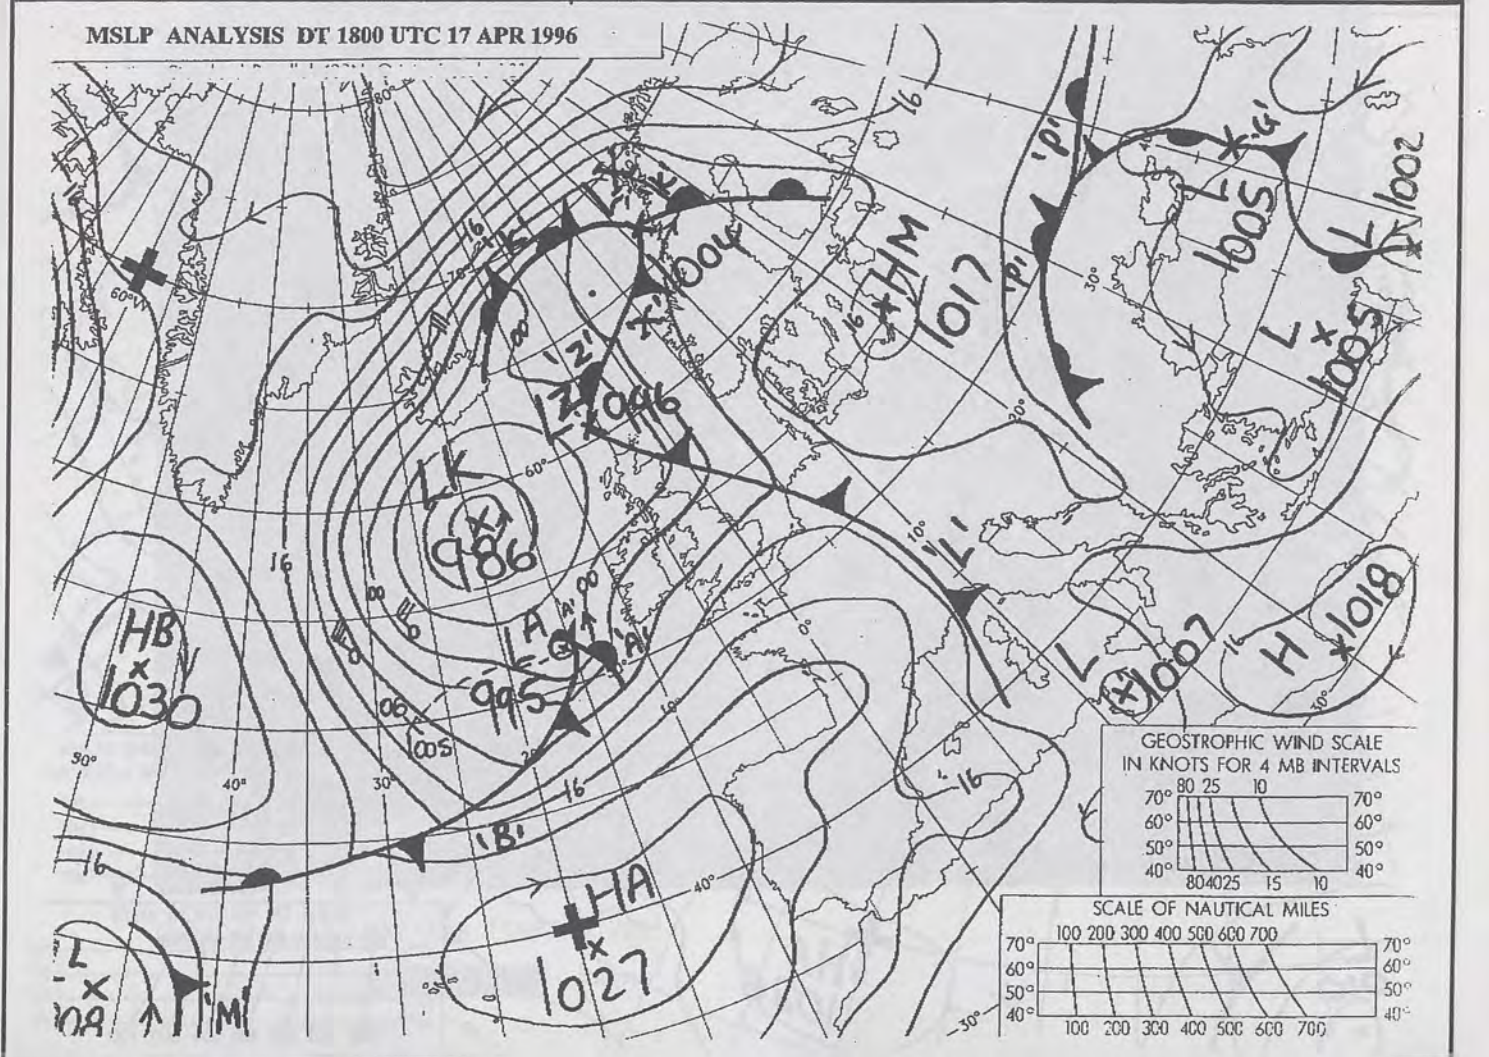 MSLP ANALYSIS DT 1800 UTC 17 APR 1996
80°
16
'P'
'G'
L
1005
L
1002
16
K
X
1004
HM
1017
16
'P'
30°
60°W
70°
00
'Z'
'X'
LZ
996
L
1005
20°
LK
986
60°
10°
'L'
16
00
HB
1030
LA
995
Q
'A'
00
'A'
0°
L
1007
H
1018
30°
00
1005
10°
20°
50°
40°
30°
16
16
'B'
16
HA
1027
40°
L
'M'
30°
GEOSTROPHIC WIND SCALE
IN KNOTS FOR 4 MB INTERVALS
80 25 10
70° 70°
60° 60°
50° 50°
40° 40°
80 40 25 15 10
SCALE OF NAUTICAL MILES
100 200 300 400 500 600 700
70° 70°
60° 60°
50° 50°
40° 40°
100 200 300 400 500 600 700